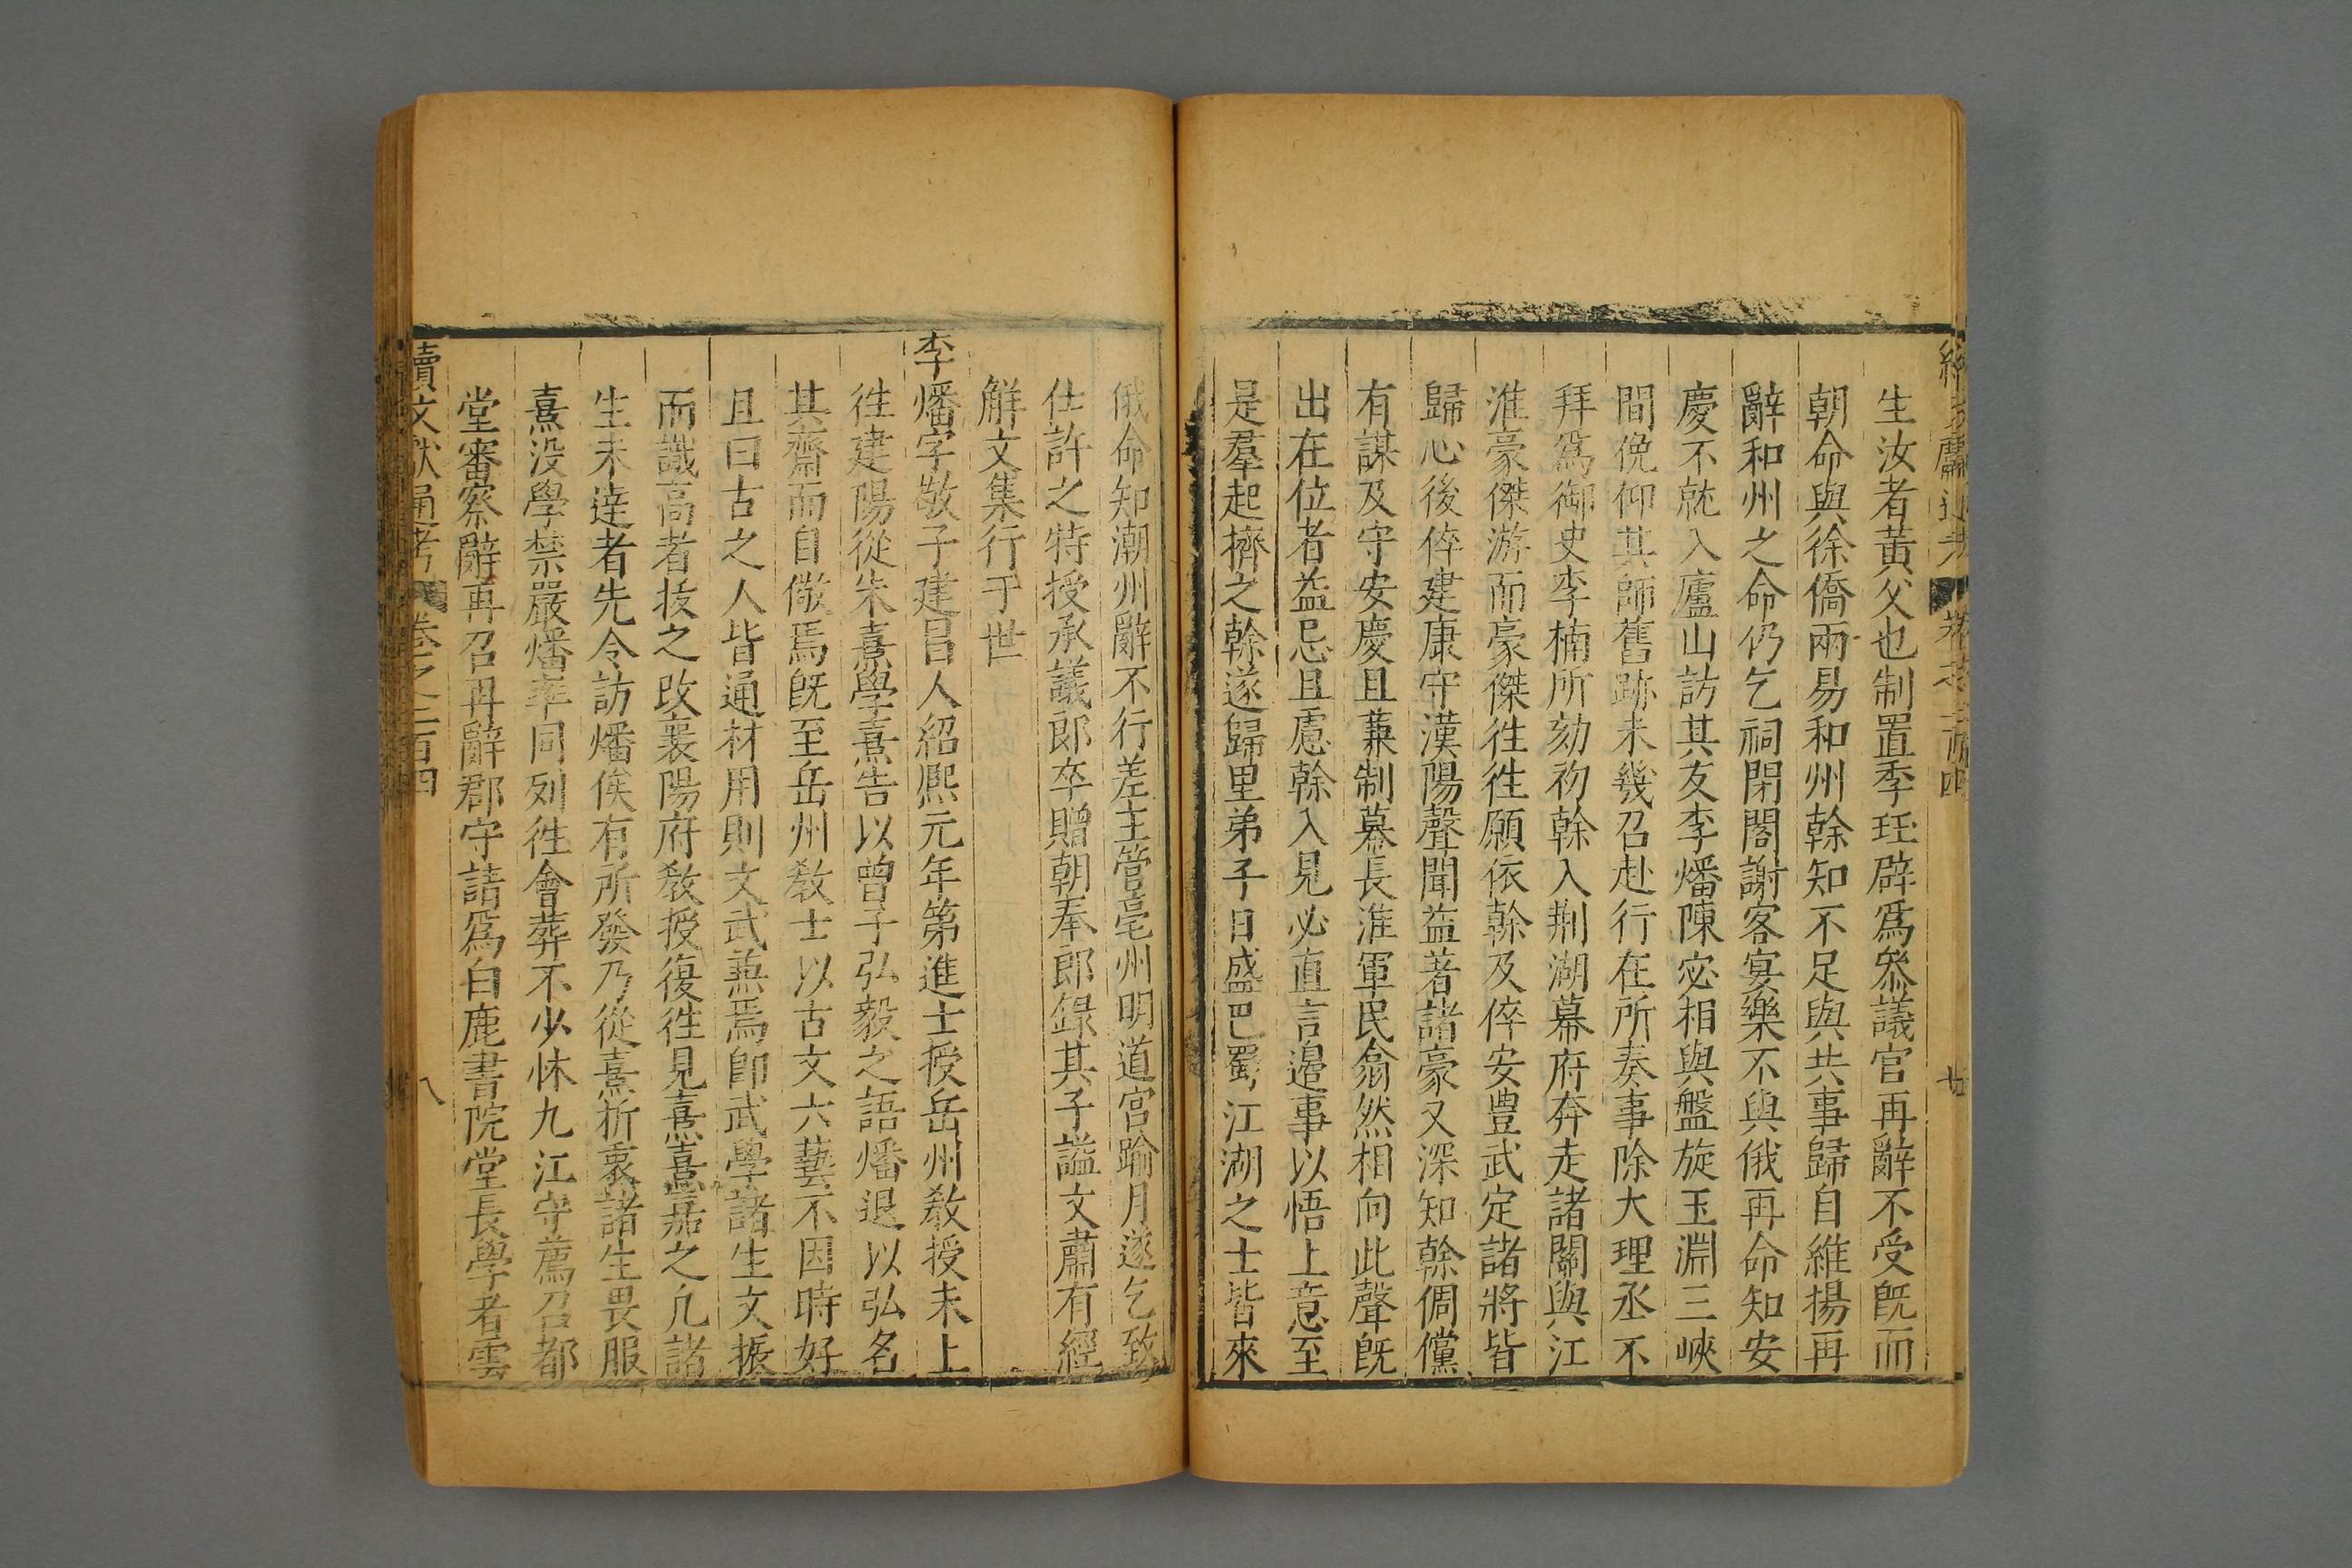 生汝者黃父也制置季珏辟爲叅議官再辭不受旣而
朝命與徐僑兩易和州榦知不足與共事歸自維揚再
辭和州之命仍乞祠閉閤謝客宴樂不與俄再命知安
慶不就入廬山訪其友李燔陳宓相與盤旋玉淵三峽
間俛仰其師舊跡未幾召赴行在所奏事除大理丞不
拜爲御史李楠所劾初榦入荆湖幕府奔走諸關與江
淮豪傑游而豪傑徃徃願依榦及倅安豊武定諸將皆
歸心後倅建康守漢陽聲聞益著諸豪又深知榦倜儻
有謀及守安慶且兼制幕長淮軍民翕然相向此聲旣
出在位者益忌且慮榦入見必直言邉事以悟上意至
是羣起擠之榦遂歸里弟子日盛巴蜀江湖之士皆來
俄命知潮州辭不行差主管亳州明道宮踰月遂乞致
仕許之特授承議郎卒贈朝奉郎錄其子謚文肅有經
解文集行于世
李燔字敬子建昌人紹熙元年第進士授岳州敎授未上
徃建陽從朱熹學熹告以曾子弘毅之語燔退以弘名
其齋而自儆焉旣至岳州敎士以古文六藝不因時好
且曰古之人皆通材用則文武兼焉卽武學諸生文振
而識高者拔之改襄陽府敎授復徃見熹熹嘉之凢諸
生未達者先令訪燔俟有所發乃從熹折衷諸生畏服
熹没學禁嚴燔率同列徃會葬不少怵九江守薦召都
堂審察辭再召再辭郡守請爲白鹿書院堂長學者雲
續文獻通考 卷之二百四 八